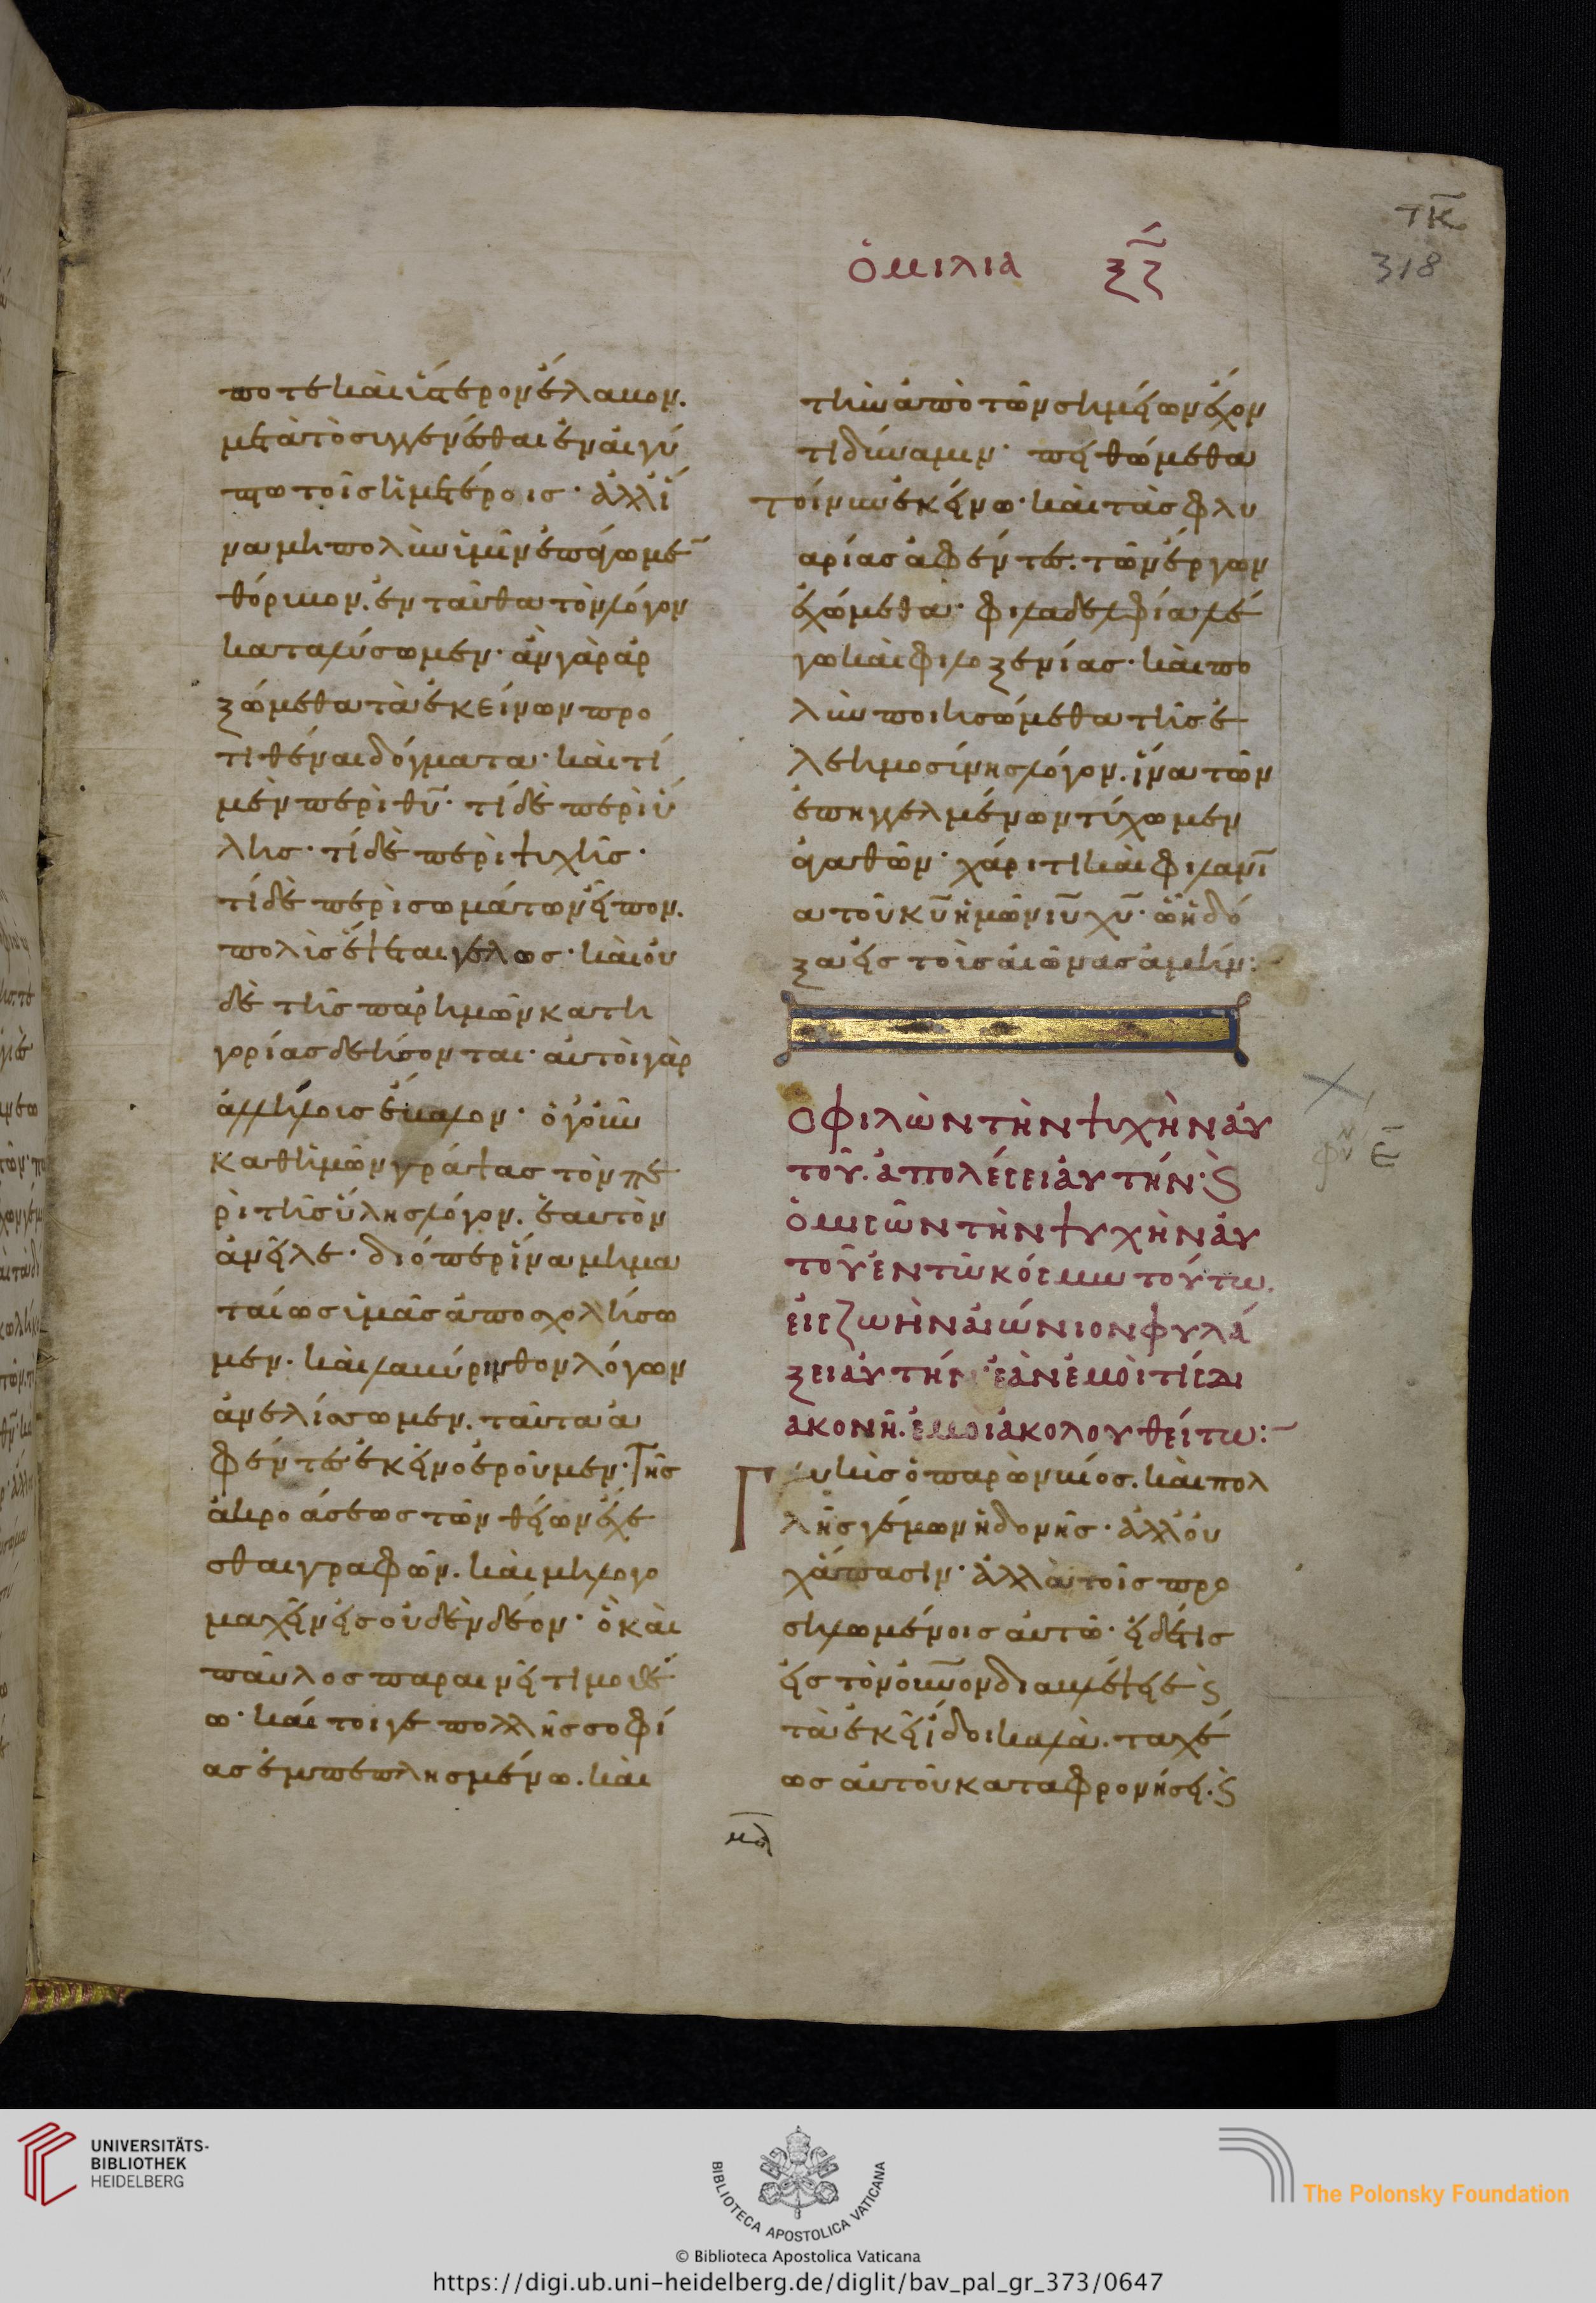 τκ
318
ὁμιλία ξζ
ποτε καὶ ὕστερον ἔλαβον.
μετὰ τὸ συγγενέσθαι ἐν αἰγύ
πτω τοῖς ἡμετέροις· ἀλλ' ἵ
να μὴ πολὺν ὑμῖν ἐπάγωμεν
θόρυβον. ἐνταῦθα τὸν λόγον
καταλύσωμεν· ἂν γὰρ ἀρ
ξώμεθα τὰ ἐκείνων προ
τιθέναι δόγματα· καὶ τί
μὲν περὶ θ̅υ̅· τί δὲ περὶ ὕ
λης· τί δὲ περὶ ψυχῆς·
τί δὲ περὶ σωμάτων εἶπον.
πολὺς ἕψεται γέλως· καὶ οὐ
δὲ τῆς παρ' ἡμῶν κατη
γορίας δεήσονται· αὐτοὶ γὰρ
ἀλλήλοις ἔβαλον· ὁ γοῦν
καθ' ἡμῶν γράψας τὸν πε
ρὶ τῆς ὕλης λόγον. ἑαυτὸν
ἀνεῖλε· διόπερ ἵνα μὴ μα
ταίως ὑμᾶς ἀποσχολήσω
μεν. καὶ λαβύρινθον λόγων
ἀνελίσσωμεν. ταῦτα ἀ
φέντες ἐκεῖνο ἐροῦμεν· Τῆς
ἀκροάσεως τῶν θείων ἔχε
σθαι γραφῶν. καὶ μὴ λογο
μαχεῖν εἰς οὐδὲν δέον· ὃ καὶ
παῦλος παραινεῖ τιμοθέ
ω· καί τοιγε πολλῆς σοφί
ας ἐμπεπλησμένω. καὶ
τὴν ἀπὸ τῶν σημείων ἔχον
τι δύναμιν· πειθώμεθα
τοίνυν ἐκείνω· καὶ τὰς φλυ
αρίας ἀφέντες. τῶν ἔργων
ἐχώμεθα· φιλαδελφίας λέ
γω καὶ φιλοξενίας· καὶ πο
λὺν ποιησώμεθα τῆς ἐ
λεημοσύνης λόγον. ἵνα τῶν
ἐπηγγελμένων τύχωμεν
ἀγαθῶν· χάριτι καὶ φιλανι̅
α τοῦ κ̅υ̅ ἡμῶν ι̅υ̅ χ̅υ̅· ὧ ἡ δό
ξα εἰς τοὺς αἰῶνας ἀμήν:
Ὁ φιλῶν τὴν ψυχὴν αὐ
τοῦ. ἀπολέσει αὐτήν· ϗ
ὁ μισῶν τὴν ψυχὴν αὐ
τοῦ ἐν τῶ κόσμω τούτω.
εἰς ζωὴν αἰώνιον φυλά
ξει αὐτήν· ἐὰν ἐμοί τις δι
ακονῆ. ἐμοὶ ἀκολουθείτω:
Γλυκὺς ὁ παρὼν βίος. καὶ πολ
λῆς γέμων ἡδονῆς· ἀλλ' οὐ
χ ἅπασιν· ἀλλὰ τοῖς προ
σηλωμένοις αὐτῶ· εἰ δέ τις
εἰς τὸν οὐ̅νο̅ν διαβλέψειε ϗ
τὰ ἐκεῖ ἴδοι καλὰ. ταχέ
ως αὐτοῦ καταφρονήσει. ϗ
μα
UNIVERSITÄTS-
BIBLIOTHEK
HEIDELBERG
BIBLIOTECA APOSTOLICA VATICANA
The Polonsky Foundation
© Biblioteca Apostolica Vaticana
https://digi.ub.uni-heidelberg.de/diglit/bav_pal_gr_373/0647